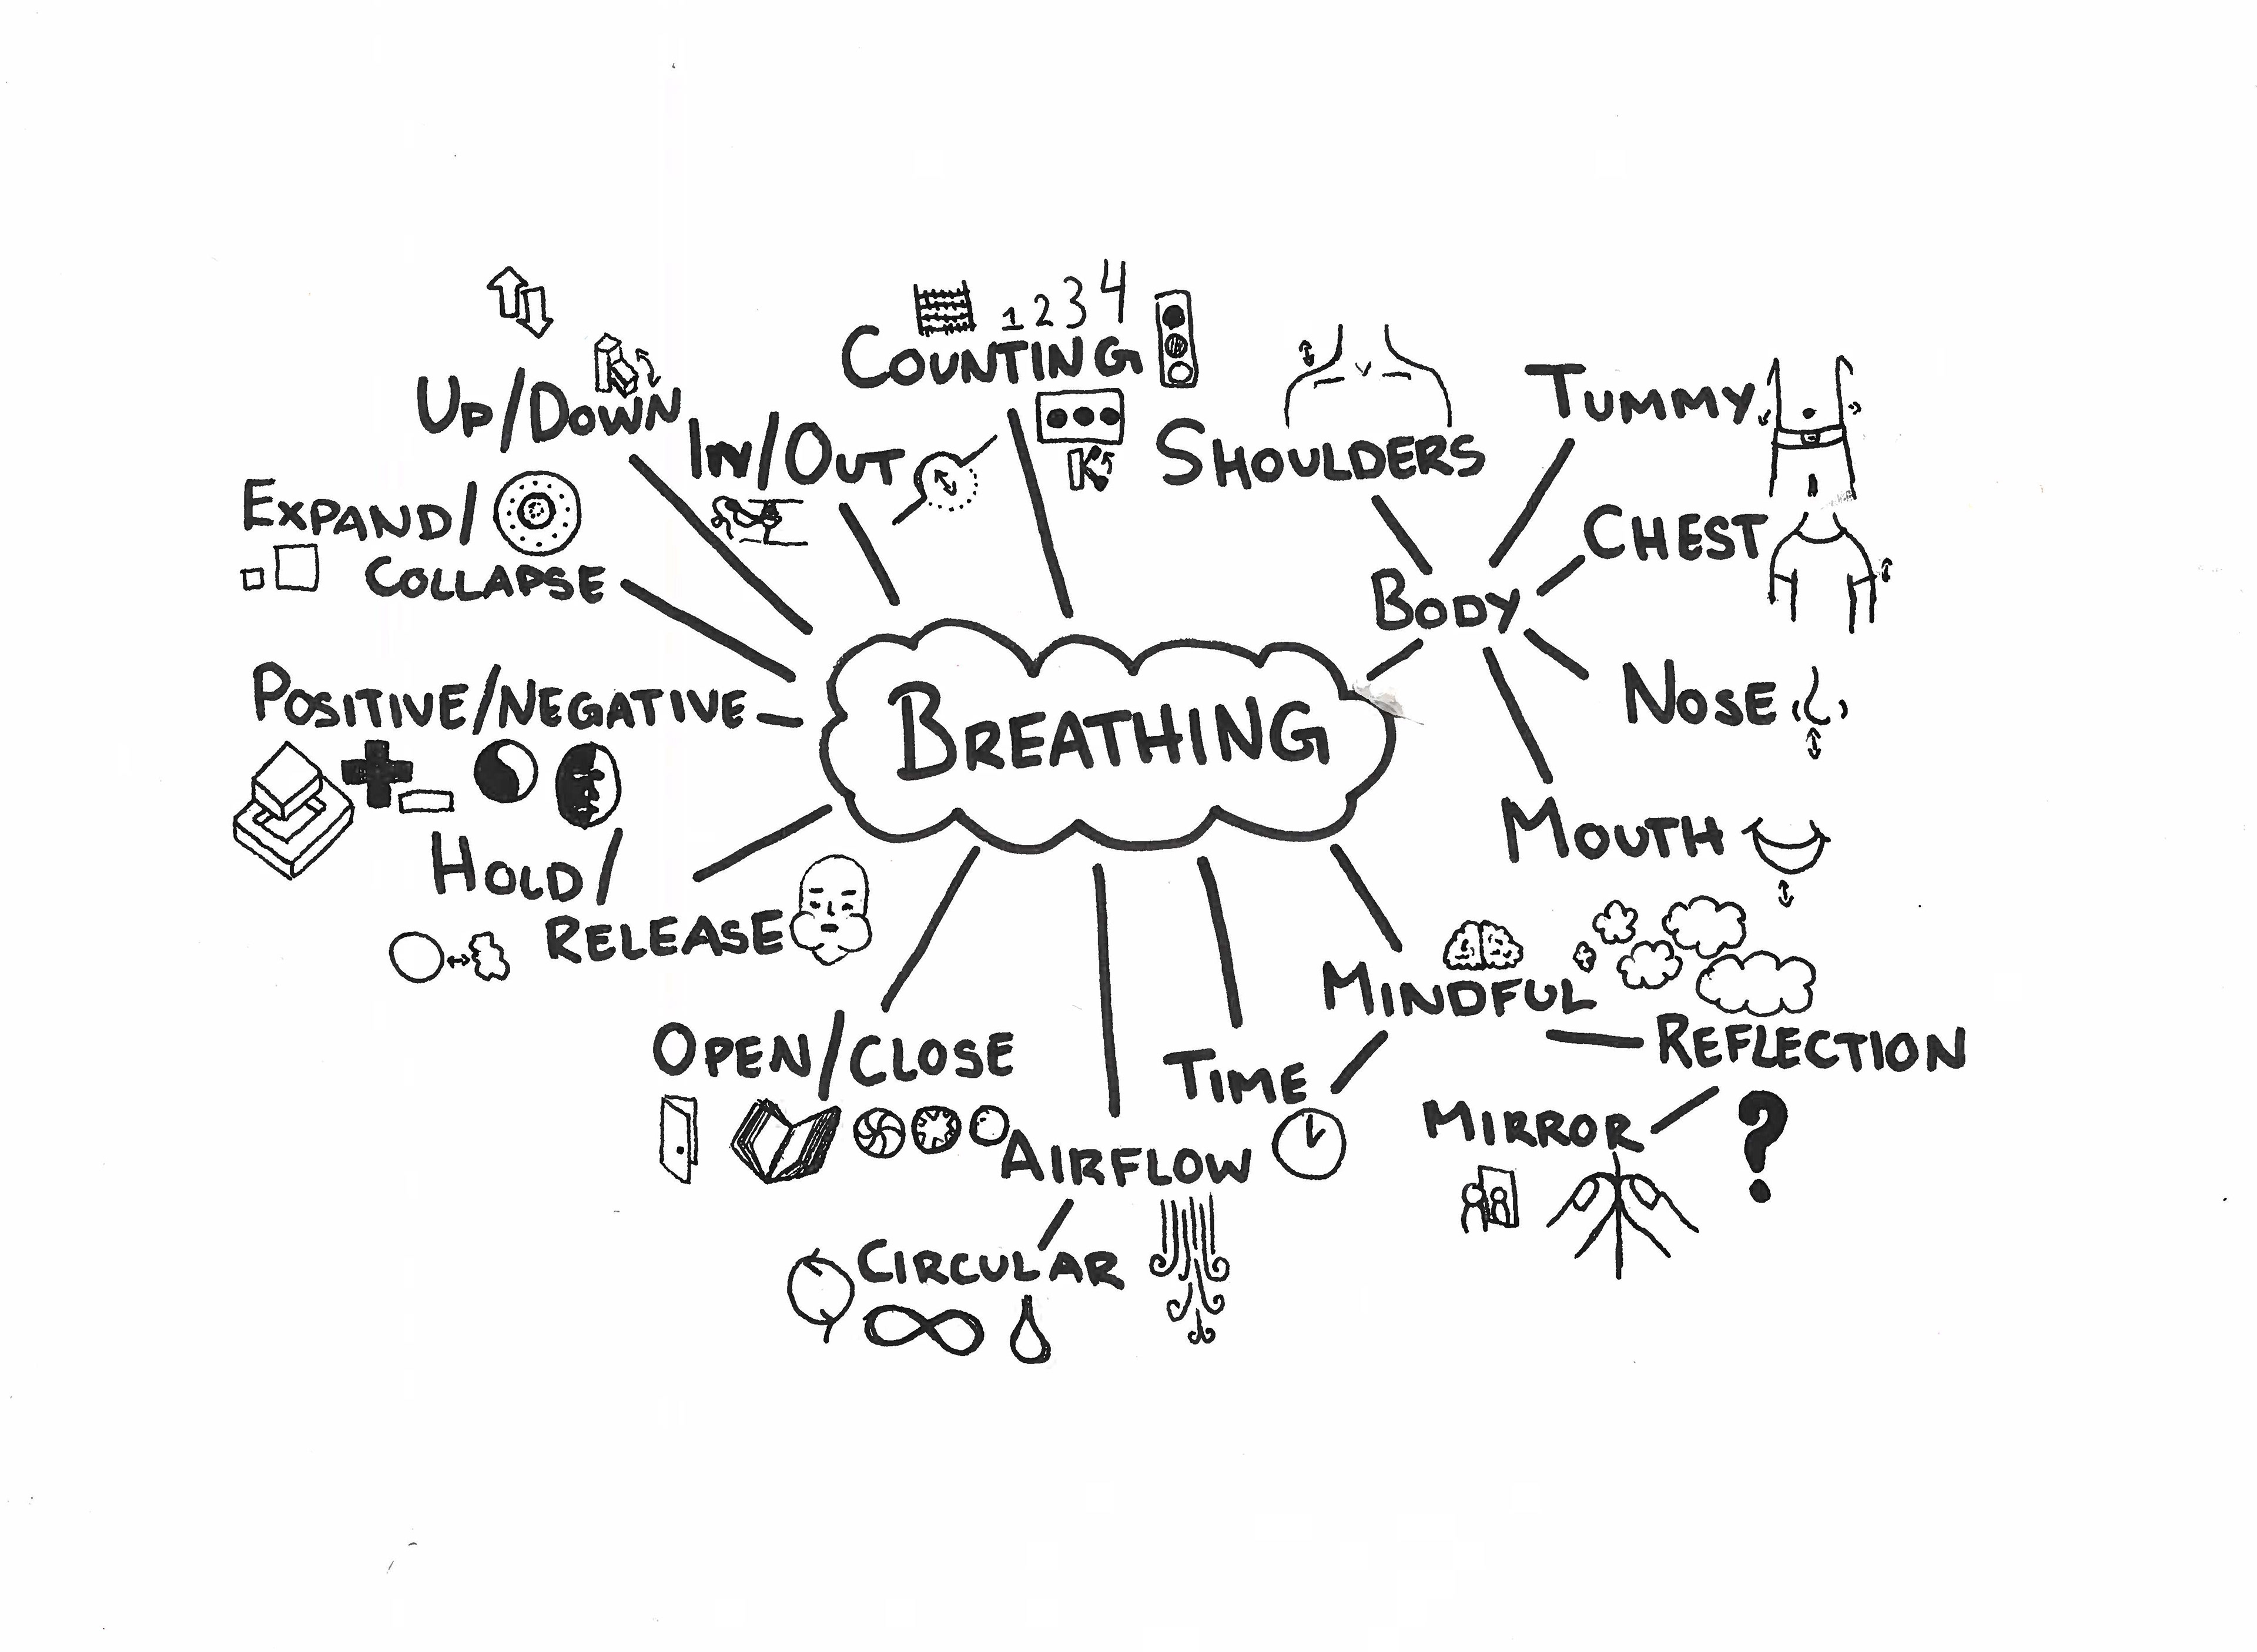 1 2 3 4
COUNTING
UP/DOWN
IN/OUT
SHOULDERS
TUMMY
EXPAND/
COLLAPSE
CHEST
BODY
POSITIVE/NEGATIVE
BREATHING
NOSE
MOUTH
HOLD/
RELEASE
MINDFUL
REFLECTION
OPEN/CLOSE
TIME
MIRROR
?
AIRFLOW
CIRCULAR